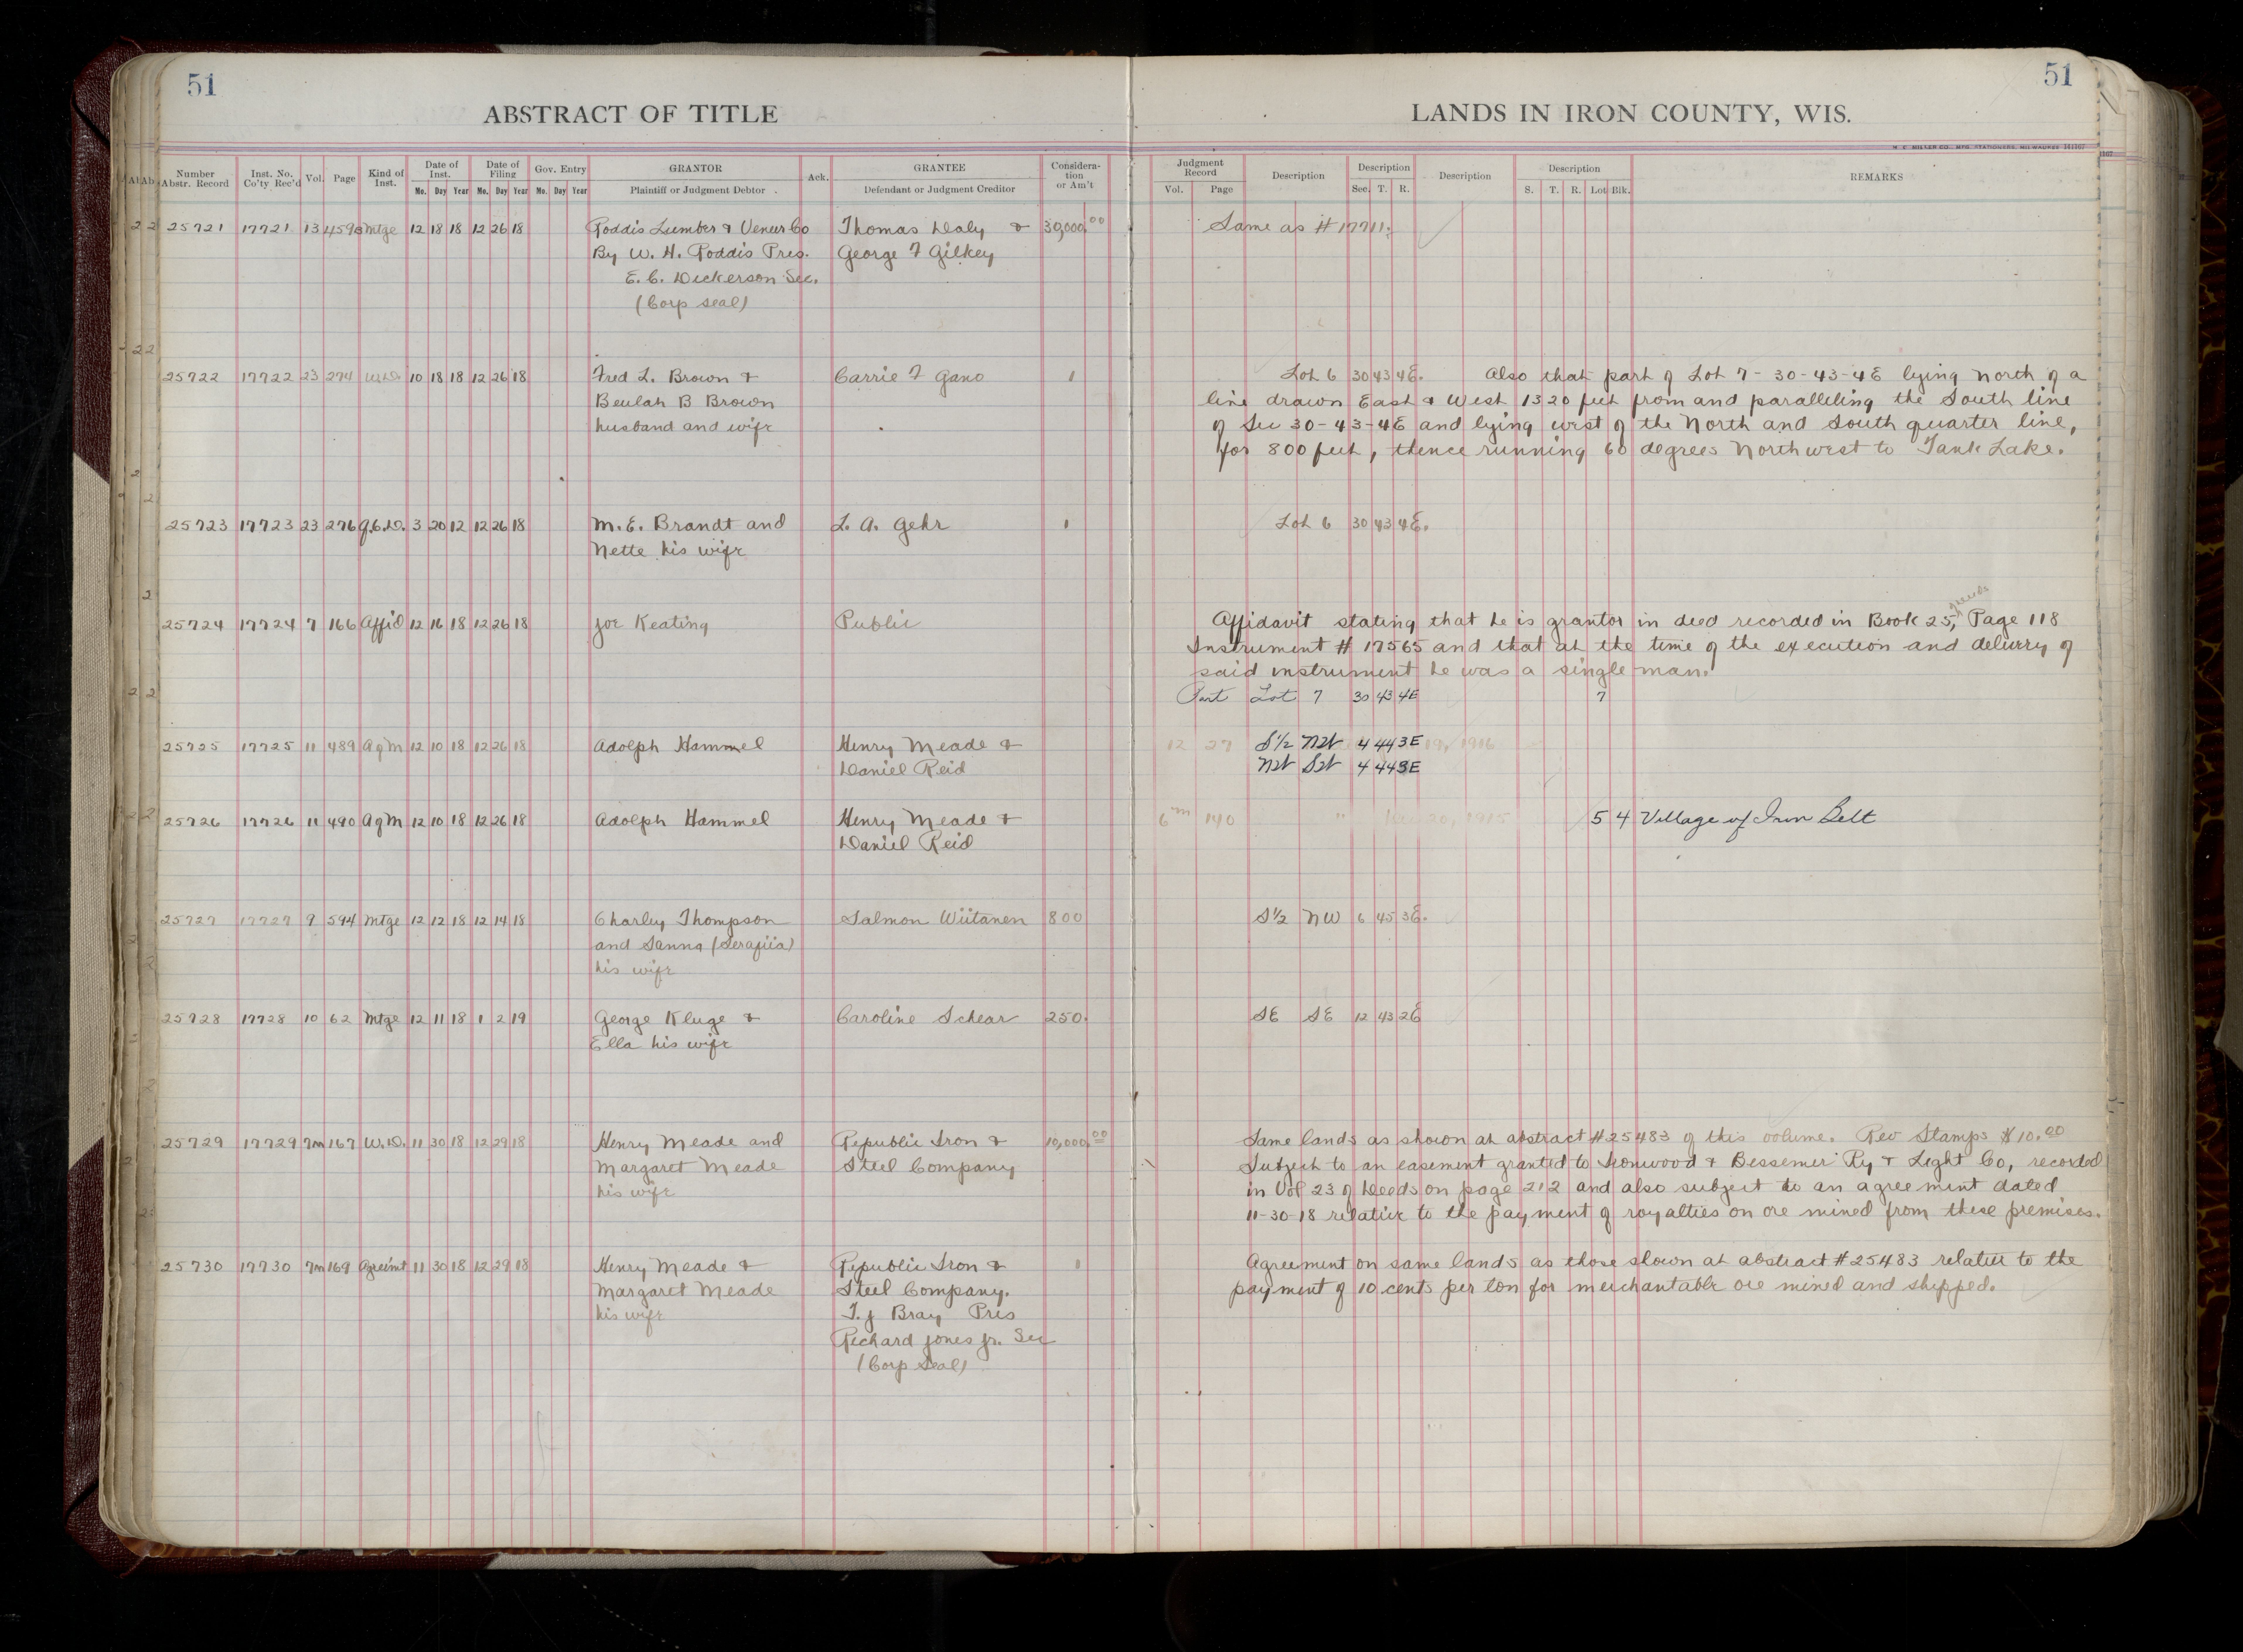 51
51
ABSTRACT OF TITLE
LANDS IN IRON COUNTY, WIS.
Number Abstr. Record Inst. No. Co'ty Rec'd Vol. Page Kind of Inst. Date of Inst. Mo. Day Year Date of Filing Mo. Day Year Gov. Entry Mo. Day Year GRANTOR Plaintiff or Judgment Debtor Ack. GRANTEE Defendant or Judgment Creditor Considera-tion or Am't
Judgment Record Vol. Page Description Description Sec. T. R. Description Description S. T. R. Lot Blk. REMARKS
25721 17721 13 459 Mtge 12 18 18 12 26 18 Roddis Lumber & Veneer Co Thomas Daly & 30,000.00 Same as # 17711.
By W. H. Roddis Pres. George F Gilkey
E. C. Dickerson Sec.
(Corp seal)
25722 17722 23 274 W.D. 10 18 18 12 26 18 Fred L. Brown & Carrie F Gano 1 Lot 6 30 43 4E. Also that part of Lot 7 - 30-43-4E lying north of a
Beulah B Brown line drawn East & West 1320 feet from and paralleling the South line
husband and wife of Sec 30-43-4E and lying west of the North and South quarter line,
for 800 feet, thence running 60 degrees Northwest to Tank Lake.
25723 17723 23 276 Q.C.D. 3 20 12 12 26 18 M. E. Brandt and L. A. Gehr 1 Lot 6 30 43 4E.
Nette his wife
25724 17724 7 166 Affid 12 16 18 12 26 18 Joe Keating Public Affidavit stating that he is grantor in deed recorded in Book 25, Page 118
Instrument # 17565 and that at the time of the execution and delivery of
said instrument he was a single man.
Part Lot 7 30 43 4E 7
25725 17725 11 489 AgM 12 10 18 12 26 18 Adolph Hammel Henry Meade & 12 27 S½ NW 4 44 3E 19, 1916
Daniel Reid NW SW 4 44 3E
25726 17726 11 490 AgM 12 10 18 12 26 18 Adolph Hammel Henry Meade & 6m 140 " 20, 1915 5 4 Village of Iron Belt
Daniel Reid
25727 17727 9 594 Mtge 12 12 18 12 14 18 Charley Thompson Salmon Wiitanen 800 S½ NW 6 45 3E.
and Sanna (Serafiia)
his wife
25728 17728 10 62 Mtge 12 11 18 1 2 19 George Kluge & Caroline Schear 250. SE SE 12 43 2E
Ella his wife
25729 17729 7m 167 W.D. 11 30 18 12 29 18 Henry Meade and Republic Iron & 10,000.00 Same lands as shown at abstract #25483 of this volume. Rev Stamps $10.00
Margaret Meade Steel Company Subject to an easement granted to Ironwood & Bessemer Ry & Light Co, recorded
his wife in Vol 23 of Deeds on page 212 and also subject to an agreement dated
11-30-18 relative to the payment of royalties on ore mined from these premises.
25730 17730 7m 169 Agreemt 11 30 18 12 29 18 Henry Meade & Republic Iron & 1 Agreement on same lands as those shown at abstract #25483 relative to the
Margaret Meade Steel Company. payment of 10 cents per ton for merchantable ore mined and shipped.
his wife T. J Bray Pres
Richard Jones Jr. Sec
(Corp Seal)